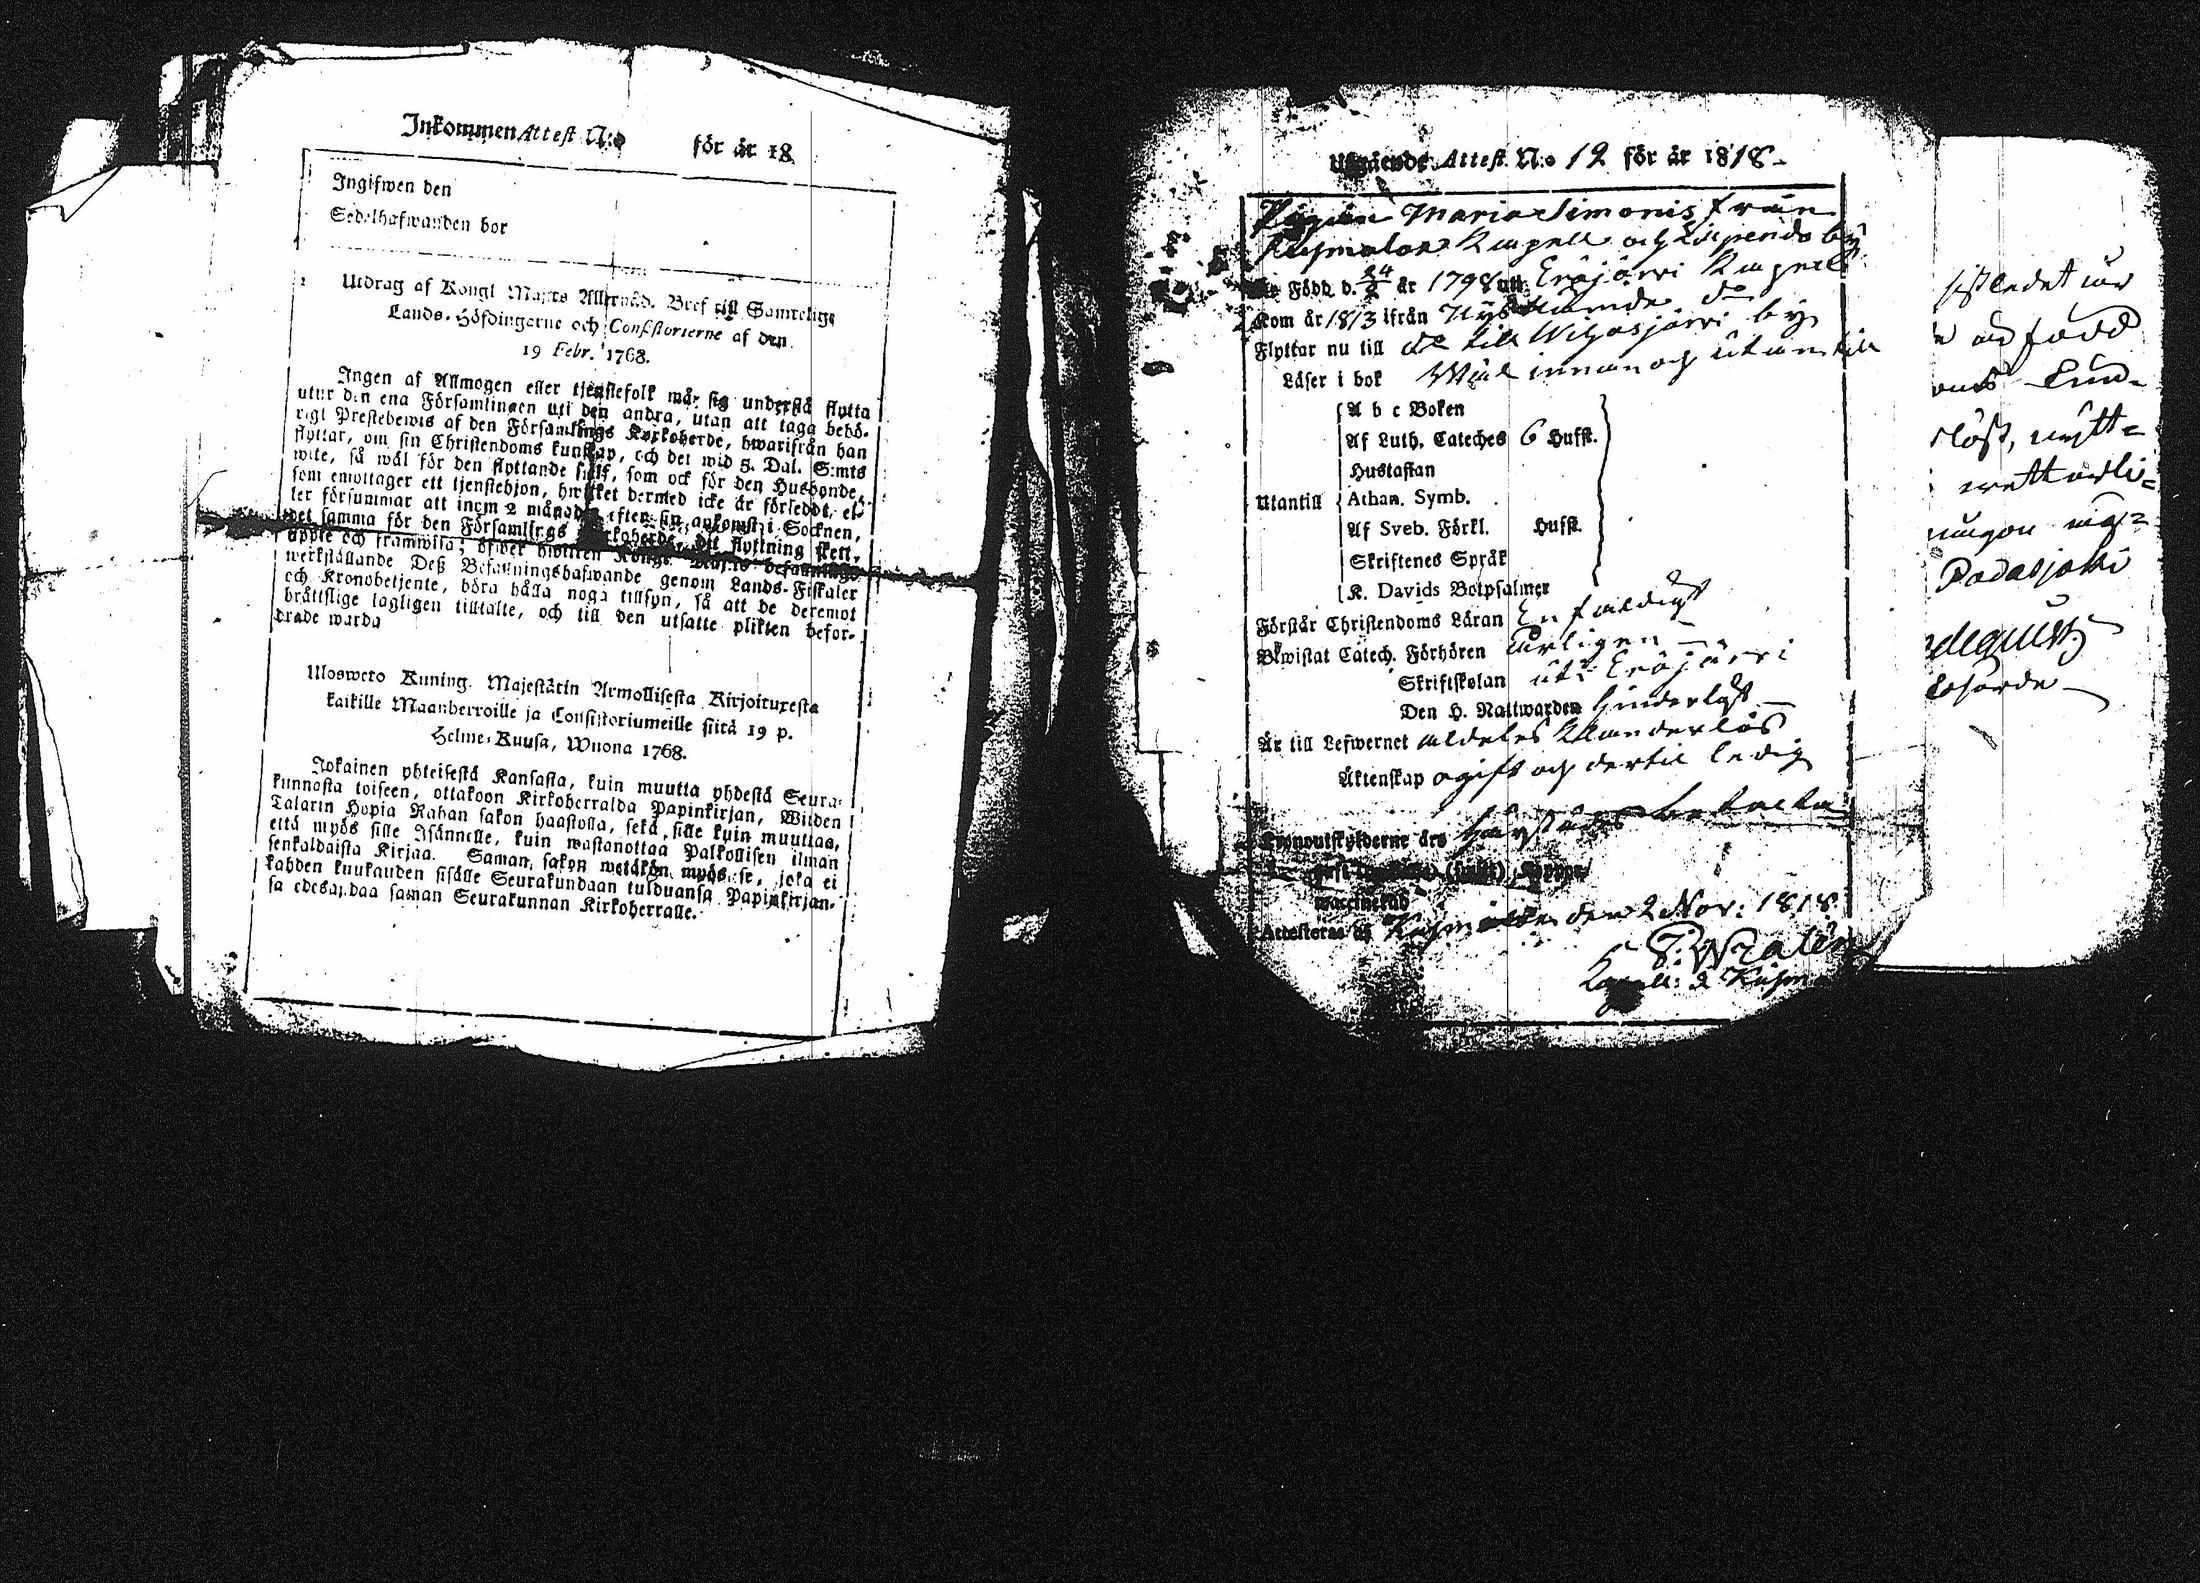 Inkommen Attest N:o för år 18
Ingifwen den
Sedelhafwanden bor
Utdrag af Kongl Maj:ts Allernåd. Bref till Samtelige
Lands-Höfdingarne och Consistorierne af den
19 Febr. 1768.
Ingen af Allmogen eller tjenstefolk må sig understå flytta
utur den ena Församlingen uti den andra, utan att taga behö-
rigt Prestebewis af den Församlings Kyrkoherde, hwarifrån han
flyttar, om sin Christendoms kunskap, och det wid 5. Dal. S:mts
wite, så wäl för den flyttande sjelf, som ock för den Husbonde,
som emottager ett tjenstehjon, hwilket dermed icke är försedt, el-
ler försummar att inom 2 månader efter sin ankomst i Socknen,
det samma för den Församlings Kyrkoherde, dit flyttning skett,
uppte och framwisa; öfwer hwilken Kongl. Maj:ts befallnings
werkställande Deß Befallningshafwande genom Lands-Fiskaler
och Kronobetjente, böra hålla noga tillsyn, så att de deremot
bråttslige lagligen tilltalte, och till den utsatte plikten befor-
drade warda
Ulosweto Kuning. Majestätin Armollisesta Kirjoituxesta
kaikille Maanherroille ja Consistoriumeille siitä 19 p.
Helme-Kuusa, Wuona 1768.
Jokainen yhteisestä Kansasta, kuin muutta yhdestä Seura-
kunnasta toiseen, ottakoon Kirkoherralda Papinkirjan, Wiiden
Talarin Hopia Rahan sakon haastolla, sekä sille kuin muuttaa,
että myös sille Isännelle, kuin wastanottaa Palkollisen ilman
senkaldaista Kirjaa. Saman sakon wetäkön myös se, joka ei
kahden kuukauden sisälle Seurakundaan tulduansa Papinkirjan-
sa edesandaa saman Seurakunnan Kirkoherralle.
Utgående Attest N:o 12 för år 1818
Pigan Maria Simonis från
Kuhmalax Kapell och by
Är Född d. 24/2 år 1798 uti Eräjärwi Kapell
Kom år 1813 ifrån nysnämde do
Flyttar nu till do till Wihasjärwi by
Läser i bok Wäl innan och utantill
Utantill
A b c Boken
Af Luth. Cateches 6 Hufst.
Hustaflan
Athan. Symb.
Af Sveb. Förkl. Hufst.
Skriftenes Språk
K. Davids Botpsalmer
Förstår Christendoms Läran Enfaldigt
Bewistat Catech. Förhören årligen
Skriftskolan uti Eräjärwi
Den H. Nattwarden
Är till Lefwernet aldeles klanderlös
Äktenskap ogift och dertil ledig
Kronoutskylderne års
haft (smitt) koppor
vaccinerad
Attesteras af den 2 Nov: 1818
sistledet år
född
Lund-
Padasjoki